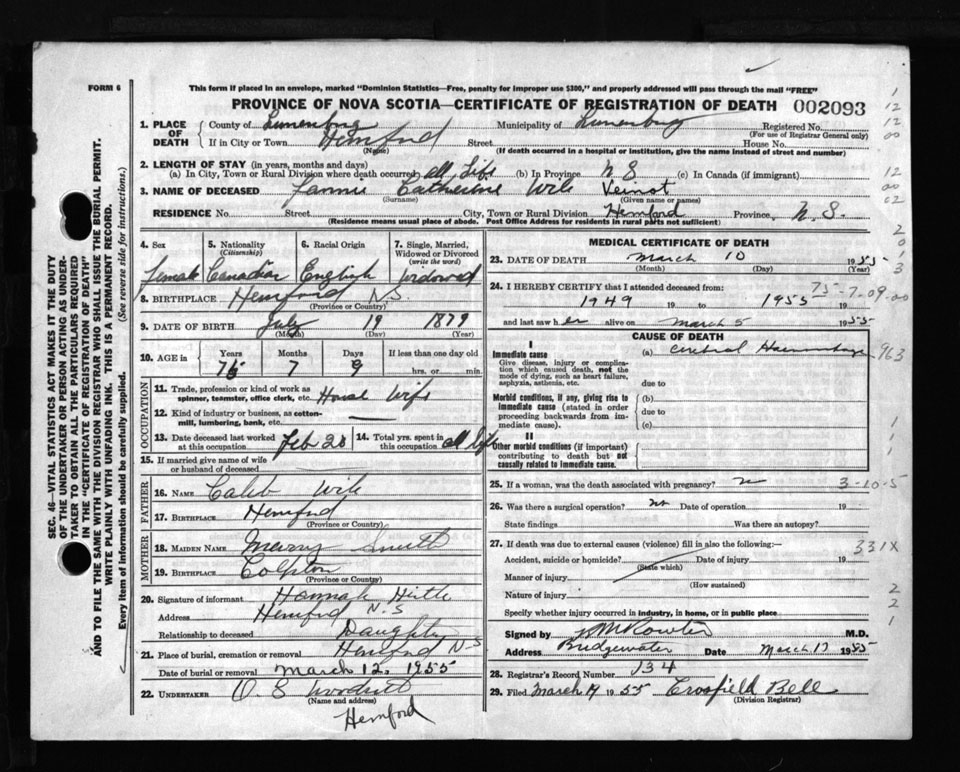 FORM 6
This form if placed in an envelope, marked "Dominion Statistics—Free, penalty for improper use $300," and properly addressed will pass through the mail "FREE"
PROVINCE OF NOVA SCOTIA—CERTIFICATE OF REGISTRATION OF DEATH 002093
1. PLACE OF DEATH County of Lunenburg Municipality of Lunenburg Registered No.
(For use of Registrar General only)
If in City or Town Hemford Street House No.
(Name) (If death occurred in a hospital or institution, give the name instead of street and number)
2. LENGTH OF STAY (in years, months and days)
(a) In City, Town or Rural Division where death occurred all Life (b) In Province N S (c) In Canada (if immigrant)
3. NAME OF DECEASED Fannie Catherine Wile Veinot
(Surname) (Given name or names)
RESIDENCE No. Street City, Town or Rural Division Hemford Province N. S.
(Residence means usual place of abode. Post Office Address for residents in rural parts not sufficient)
4. Sex 5. Nationality (Citizenship) 6. Racial Origin 7. Single, Married, Widowed or Divorced (write the word)
female Canadian English widowed
8. BIRTHPLACE Hemford N.S.
(Province or Country)
9. DATE OF BIRTH July 19 1879
(Month) (Day) (Year)
10. AGE in Years Months Days If less than one day old
75 7 9 hrs. or min.
OCCUPATION
11. Trade, profession or kind of work as spinner, teamster, office clerk, etc. House Wife
12. Kind of industry or business, as cotton-mill, lumbering, bank, etc.
13. Date deceased last worked at this occupation Feb 28 14. Total yrs. spent in this occupation all life
15. If married give name of wife or husband of deceased
FATHER
16. NAME Caleb Wile
17. BIRTHPLACE Hemford
(Province or Country)
MOTHER
18. MAIDEN NAME Smith
19. BIRTHPLACE Colpton
(Province or Country)
20. Signature of informant Hannah
Address Hemford N.S
Relationship to deceased Daughter
21. Place of burial, cremation or removal Hemford N S
Date of burial or removal March 12, 1955
22. UNDERTAKER O S
(Name and address)
Hemford
MEDICAL CERTIFICATE OF DEATH
23. DATE OF DEATH March 10 1955
(Month) (Day) (Year)
24. I HEREBY CERTIFY that I attended deceased from:
75-7-09-00
1949 19 to 1955 19
and last saw her alive on March 5 1955
CAUSE OF DEATH
I
Immediate cause (a) Cerebral Haemorrhage 963
Give disease, injury or complication which caused death, not the mode of dying, such as heart failure, asphyxia, asthenia, etc.
due to
Morbid conditions, if any, giving rise to immediate cause (stated in order proceeding backwards from immediate cause).
(b)
due to
(c)
II
Other morbid conditions (if important) contributing to death but not causally related to immediate cause.
25. If a woman, was the death associated with pregnancy? 3-10-5
26. Was there a surgical operation? no Date of operation 19
State findings Was there an autopsy?
27. If death was due to external causes (violence) fill in also the following:— 331X
Accident, suicide or homicide? Date of injury 19
(State which)
Manner of injury
(How sustained)
Nature of injury
Specify whether injury occurred in industry, in home, or in public place
Signed by M.D.
Address Bridgewater Date March 17 1955
28. Registrar's Record Number 134
29. Filed March 19 1955 Crosfield Bell
(Division Registrar)
SEC. 46—VITAL STATISTICS ACT MAKES IT THE DUTY
OF THE UNDERTAKER OR PERSON ACTING AS UNDERTAKER TO OBTAIN ALL THE PARTICULARS REQUIRED
IN THE "CERTIFICATE OF REGISTRATION OF DEATH"
AND TO FILE THE SAME WITH THE DIVISION REGISTRAR WHO SHALL ISSUE THE BURIAL PERMIT.
WRITE PLAINLY WITH UNFADING INK. THIS IS A PERMANENT RECORD.
Every item of information should be carefully supplied. (See reverse side for instructions.)